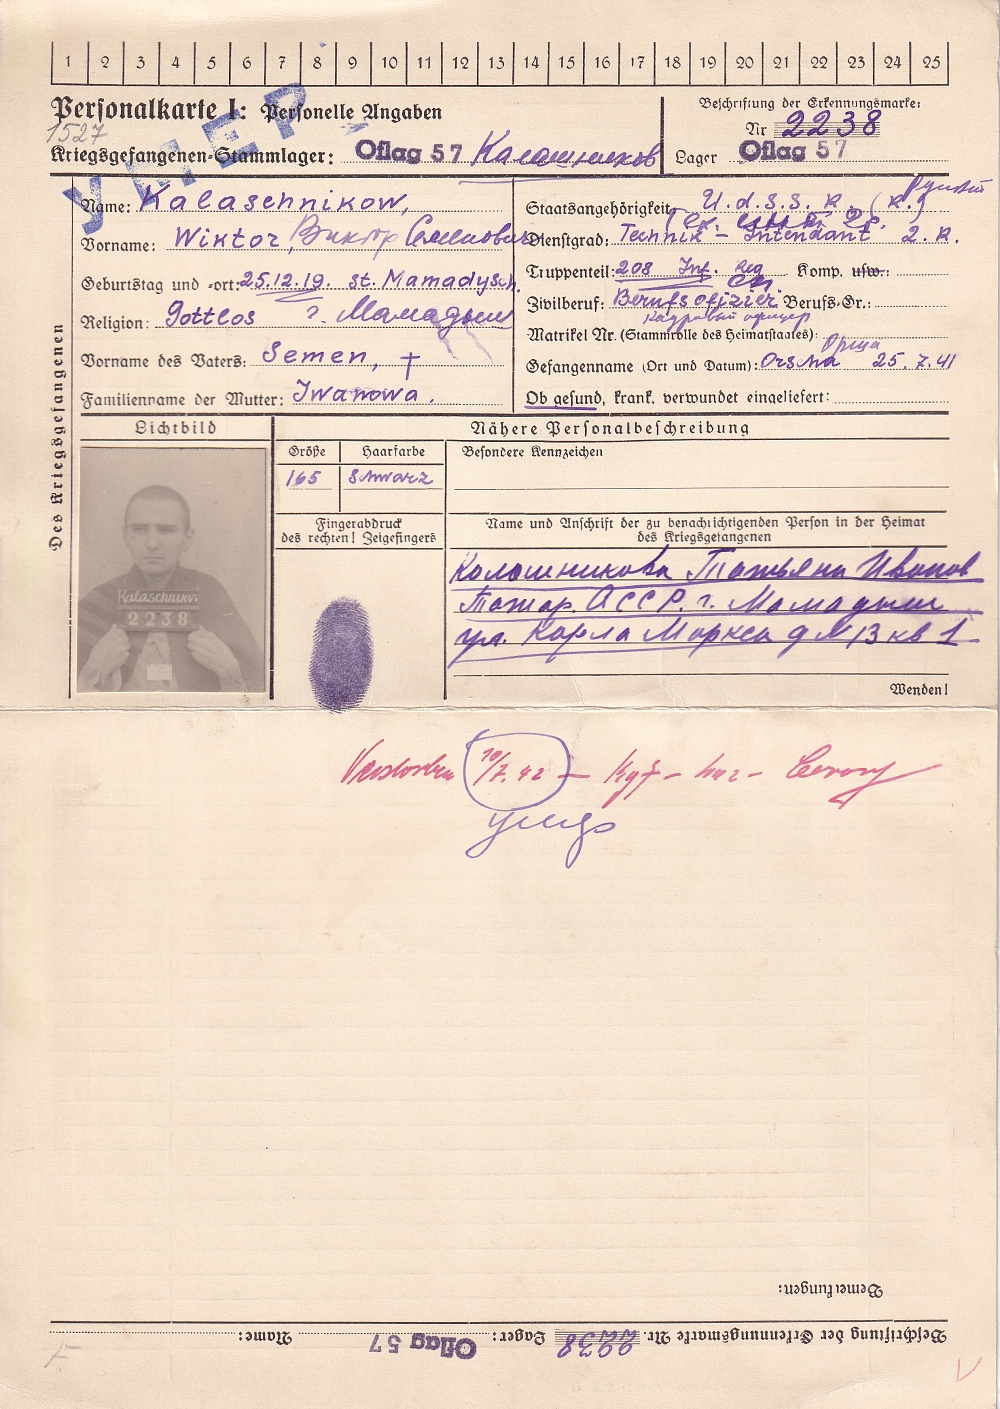 1 2 3 4 5 6 7 8 9 10 11 12 13 14 15 16 17 18 19 20 21 22 23 24 25
Personalkarte I: Personelle Angaben
УМЕР
1527
Kriegsgefangenen-Stammlager: Oflag 57 Калашников
Beschriftung der Erkennungsmarke:
Nr 2238
Lager Oflag 57
Des Kriegsgefangenen
Name: Kalaschnikow,
Vorname: Wiktor, Виктор Семенович
Geburtstag und -ort: 25.12.19. st. Mamadysch.
Religion: Gottlos г. Мамадыш
Vorname des Vaters: Semen, †
Familienname der Mutter: Iwanowa.
Staatsangehörigkeit: U.d.S.S.R. (R.)
Dienstgrad: Technik - Intendant 2. R.
Truppenteil: 208 Inf. Reg Komp. usw.:
Zivilberuf: Berufsofizier Berufs-Gr.:
кадровый офицер
Matrikel Nr. (Stammrolle des Heimatstaates):
Орша
Gefangenname (Ort und Datum): Orscha 25.7.41
Ob gesund, krank, verwundet eingeliefert:
Lichtbild
Nähere Personalbeschreibung
Größe Haarfarbe Besondere Kennzeichen
165 Schwarz
Fingerabdruck
des rechten! Zeigefingers
Name und Anschrift der zu benachrichtigenden Person in der Heimat
des Kriegsgefangenen
Калашникова Татьяна Иванов
Татар. АССР. г. Мамадыш
ул. Карла Маркса д N 13 кв 1
Kalaschnikow
2238
Wenden!
Verstorben 10/7. 42 –
умер
Bemerkungen:
Beschriftung der Erkennungsmarke Nr. 2238 Lager: Oflag 57 Name: